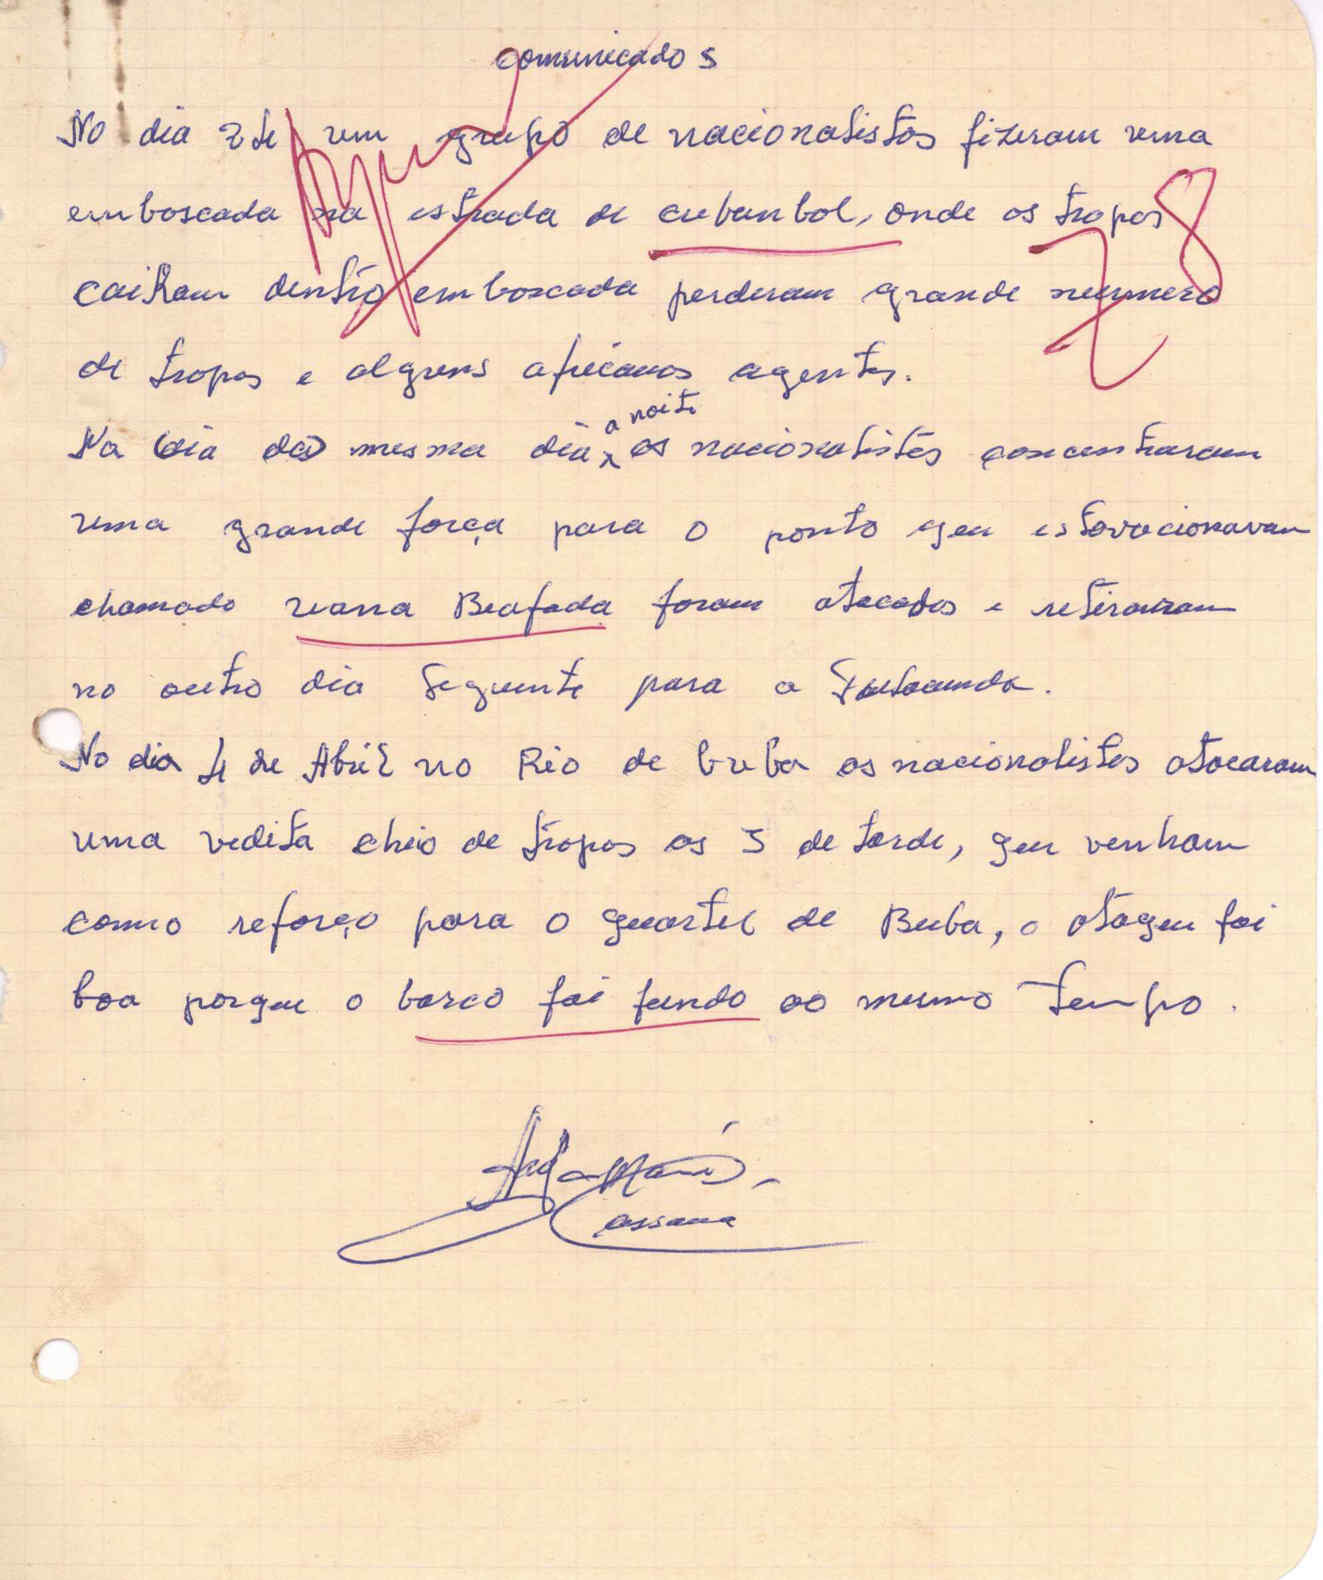 comunicados
No dia 24 um grupo de nacionalistas fizeram uma
emboscada na estrada de cubumbol, onde os tropas
cairam dentro emboscada perderam grande nummero
de tropas e alguns africanos agentes.
Na dia da mesma dia a noite os nacionalistas concentraram
uma grande força para o ponto que
chamado uana Beafada foram atacados e retiraram
no outro dia seguente para a
No dia 4 de Abril no Rio de buba os nacionalistas atacaram
uma vedita cheio de tropas as 5 de tarde, que venham
como reforço para o quartel de Buba, o ataque foi
boa porque o barco foi fundo ao mesmo tempo.
Cassama